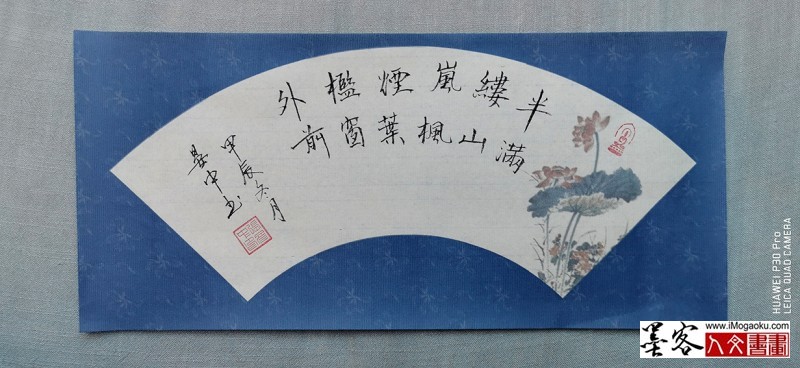 半縷嵐煙檻外
滿山楓葉窗前
甲辰冬月
中书
HUAWEI P30 Pro
LEICA QUAD CAMERA
墨客
www.iMogaoku.com
人文書畫